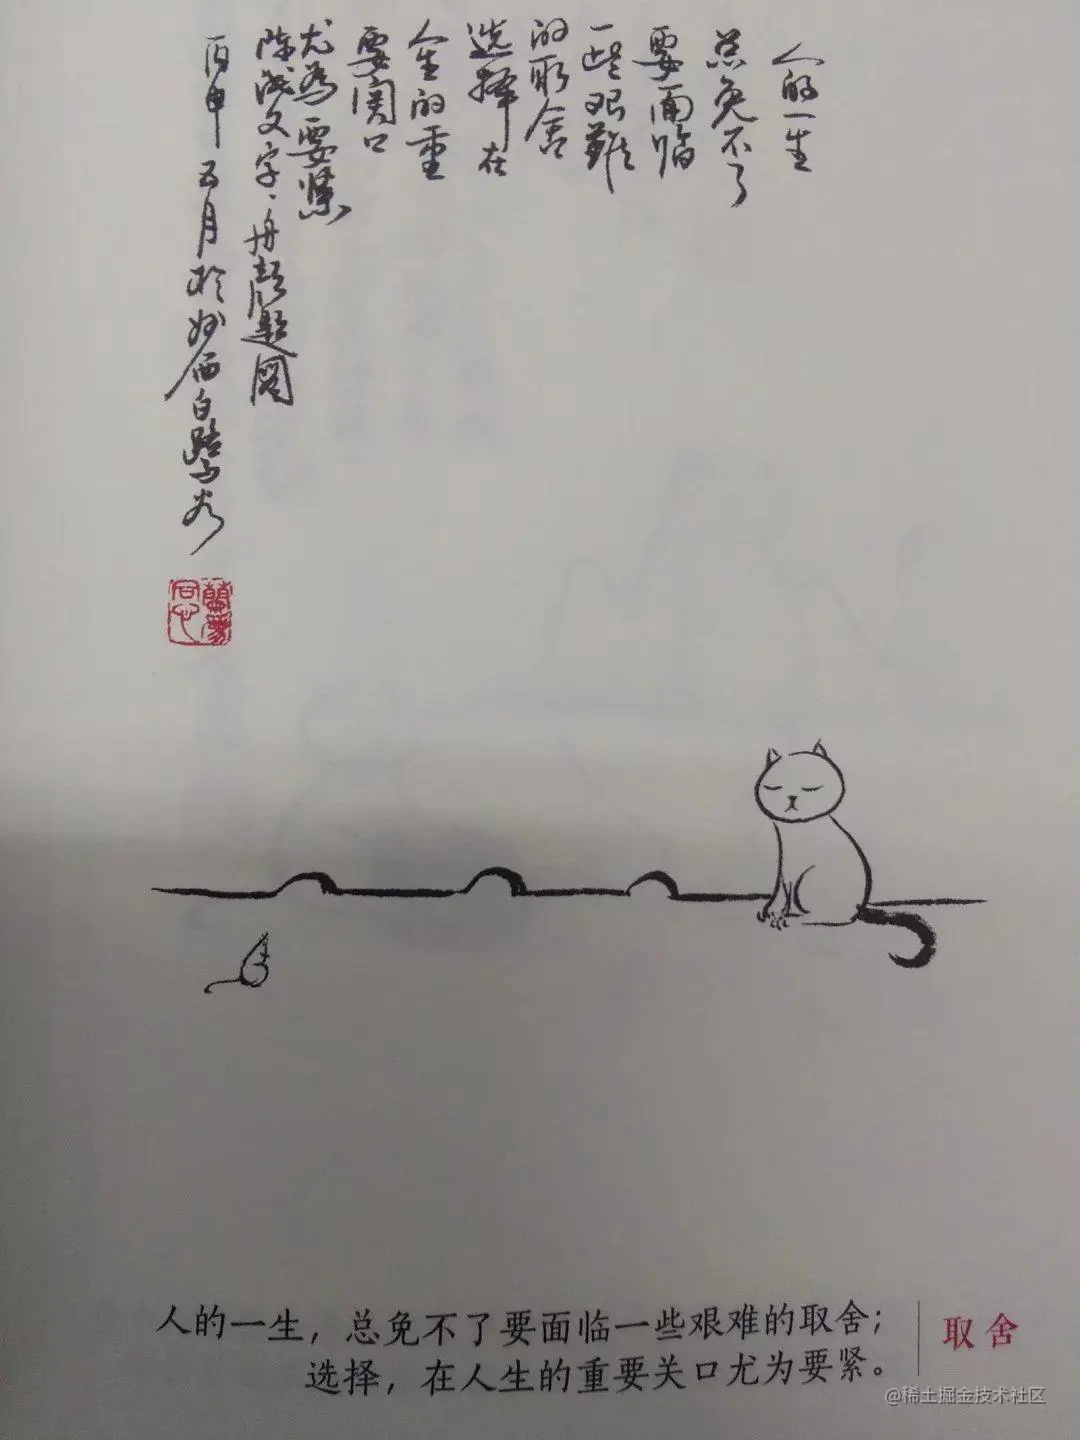 人的一生
总免不了
要面临
一些艰难
的取舍
选择在
人生的重
要関口
尤为要紧
陈成文字、舟颜题図
丙申五月於妙西白鹭谷
人的一生，总免不了要面临一些艰难的取舍；
选择，在人生的重要关口尤为要紧。
取舍
@稀土掘金技术社区